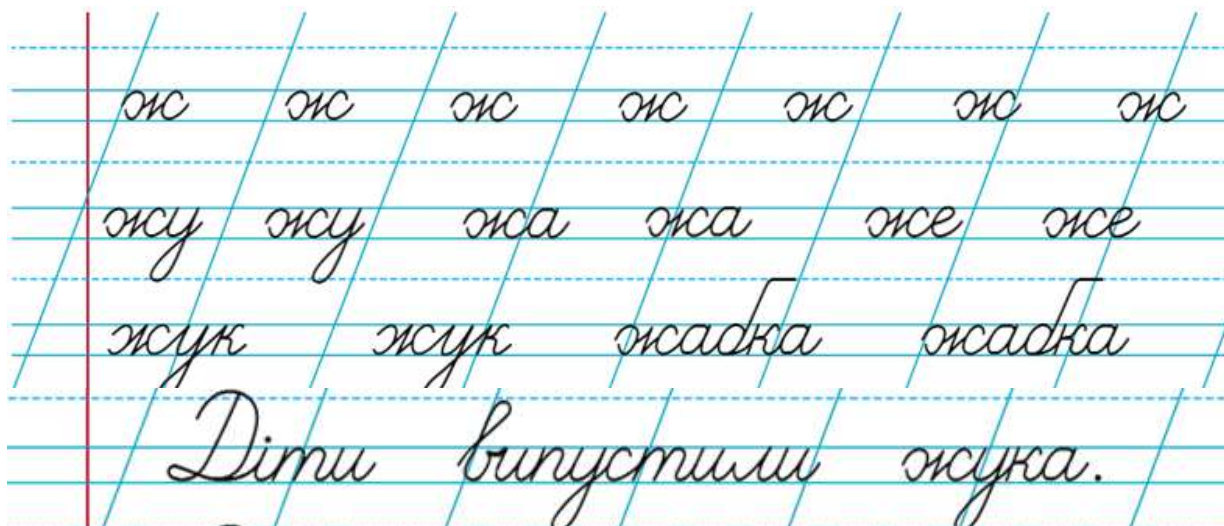 ж ж ж ж ж ж ж
жу жу жа жа же же
жук жук жабка жабка
Діти випустили жука.